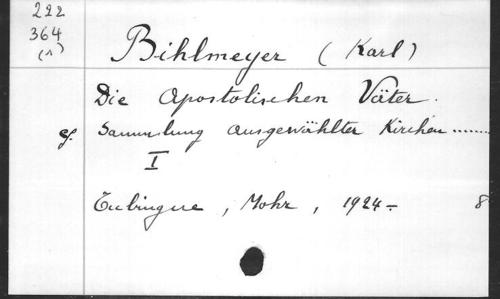 222
364
(1)
Bihlmeyer (Karl)
Die Apostolischen Väter.
cf. Sammlung ausgewählter Kirchen.......
I
Tubingue, Mohr, 1924 - 8